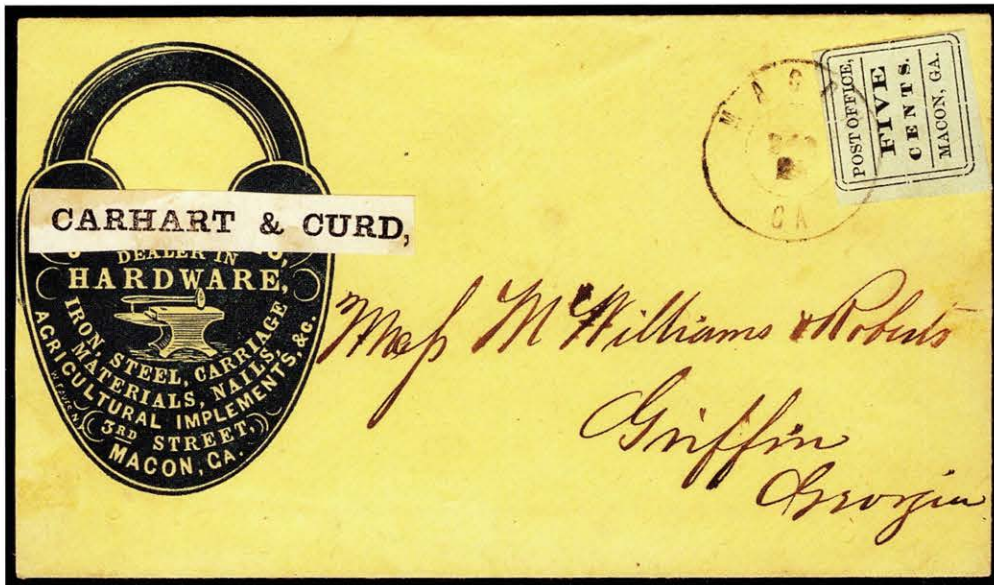 CARHART & CURD,
DEALER IN
HARDWARE,
IRON, STEEL, CARRIAGE
MATERIALS, NAILS,
AGRICULTURAL IMPLEMENTS, &C.
3RD STREET,
MACON, GA.
MACON
GA
POST OFFICE,
FIVE
CENTS.
MACON, GA.
Mess McWilliams & Roberts
Griffin
Georgia